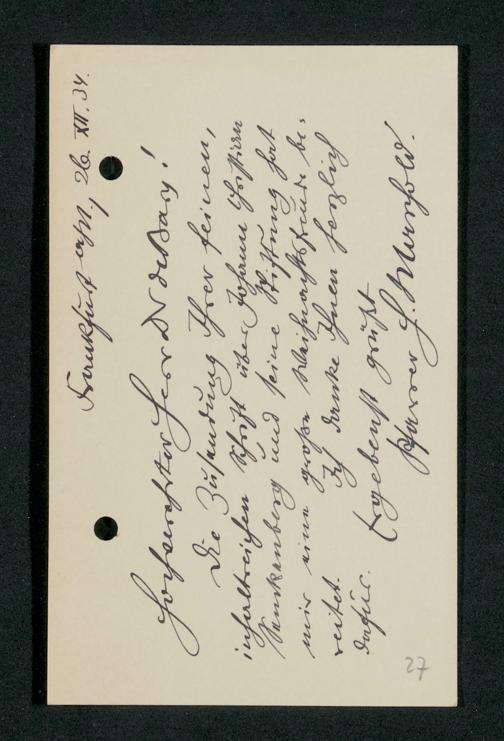 Frankfurt a/M, 26. XII. 34.
Hochverehrter Herr Dr de Bary!
Die Zusendung Ihrer feinen,
inhaltreichen Schrift über Johann Christian
Senckenberg und seine Stiftung hat
mir eine große Weihnachtsfreude be-
reitet. Ich danke Ihnen herzlich
dafür.
Ergebenst grüßt
Pfarrer
27